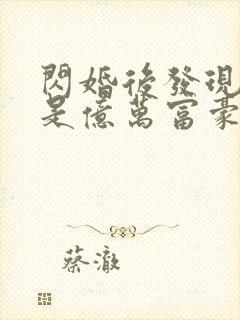 閃婚後發現
是億萬富豪
蔡澈